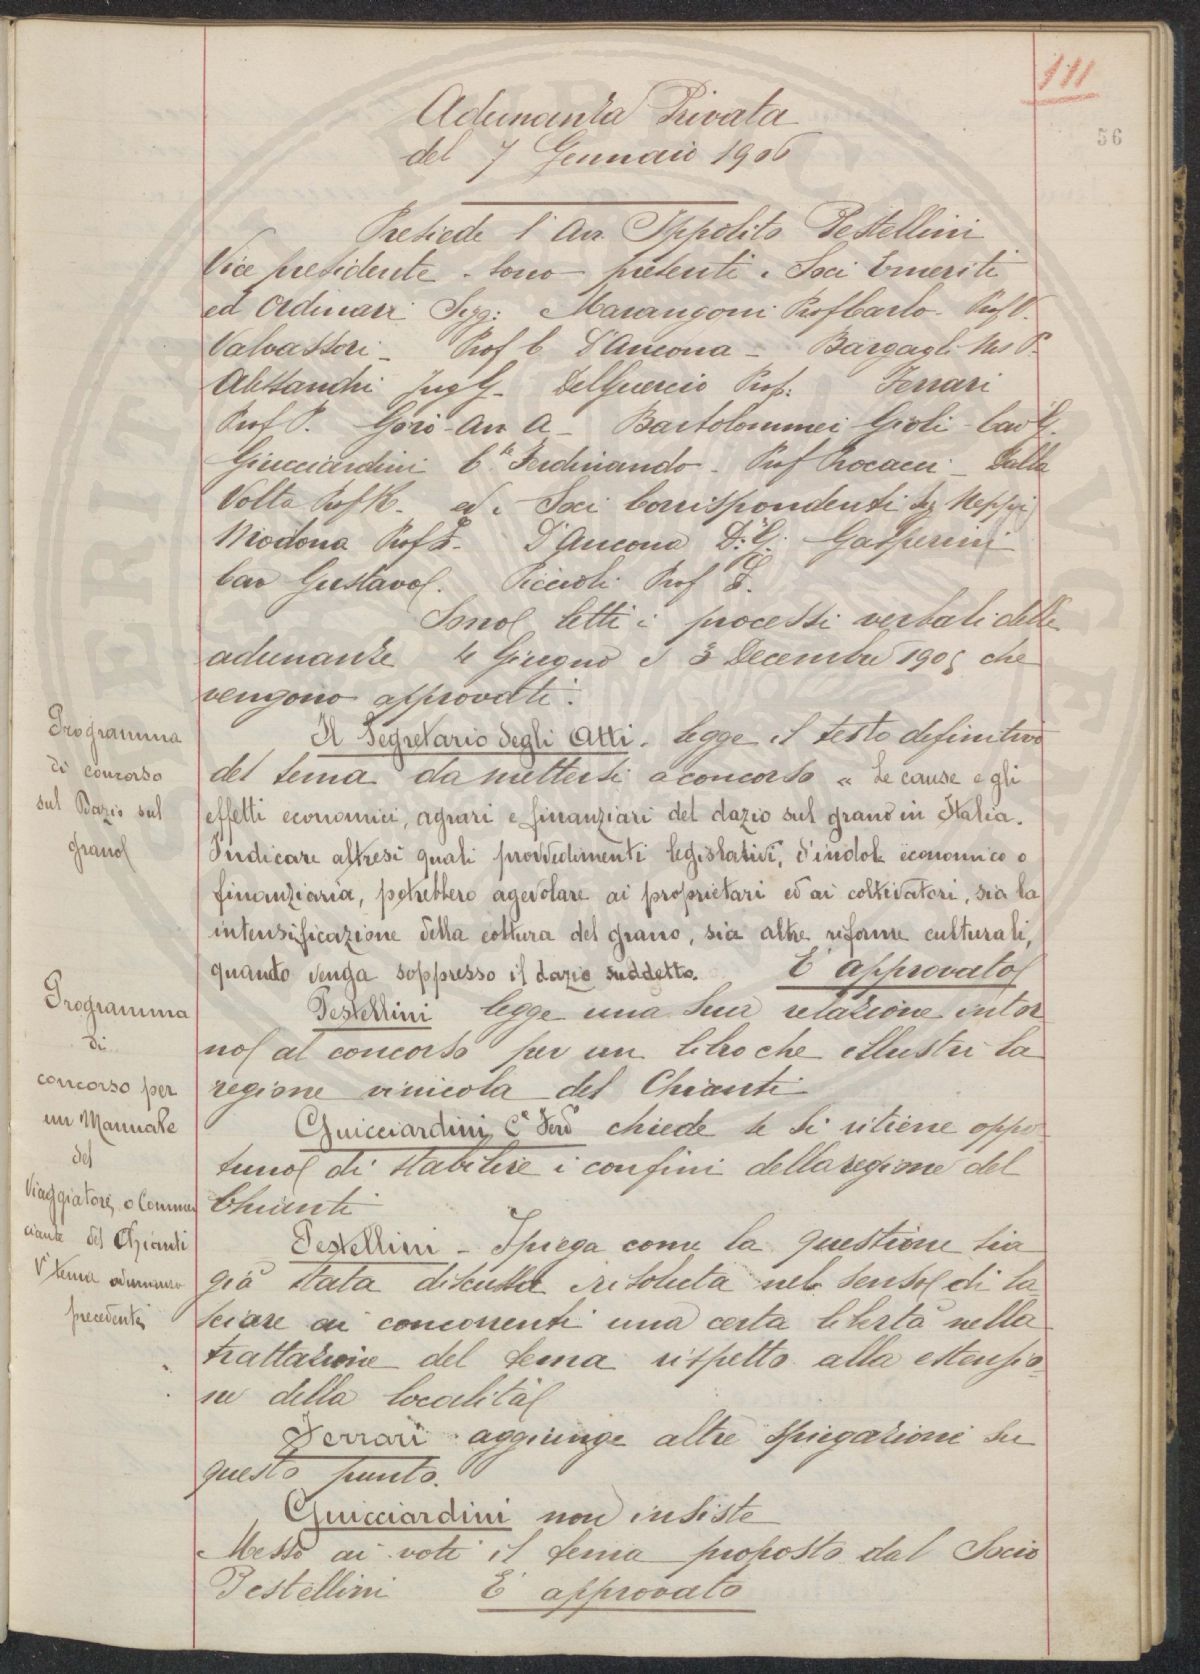 111
56
Adunanza Privata
del 7 Gennaio 1906
Presiede l'Avv. Ippolito Pestellini
Vice presidente - sono presenti i Soci Emeriti
ed Ordinari Sigg: Marangoni Prof Carlo - Prof V.
Valvassori - Prof C D'Ancona - Bargagli Ms P.
Alessandri Ing G - DelGuercio Prof: Ferrari
Prof P. Gori - Avv A - Bartolommei Gioli - Cav G.
Guicciardini C.te Ferdinando - Prof Procacci - Dalla
Volta Prof R. ed i Soci Corrispondenti Sig Neppi
Modona Prof L. D'Ancona D.r G. Gasperini
Cav Gustavo. Piccioli Prof L.
Sono letti i processi verbali delle
adunanze 4 Giugno e 3 Decembre 1905 che
vengono approvati.
Programma
di concorso
sul Dazio sul
grano
Il Segretario degli Atti. legge il testo definitivo
del tema da mettersi a concorso " Le cause e gli
effetti economici, agrari e finanziari del dazio sul grano in Italia.
Indicare altresì quali provvedimenti legislativi, d'indole economico o
finanziaria, potrebbero agevolare ai proprietari ed ai coltivatori, sia la
intensificazione della coltura del grano, sia altre riforme culturali,
quando venga soppresso il dazio suddetto. E' approvato
Programma
di
concorso per
un Manuale
del
Viaggiatore, o Commer
ciante del Chianti
V° tema adunanza
precedente
Pestellini legge una sua relazione intor
no al concorso per un libro che illustri la
regione vinicola del Chianti
Guicciardini C.e Ferd° chiede se si ritiene oppor
tuno di stabilire i confini della regione del
Chianti
Pestellini - Spiega come la questione sia
già stata discussa e risoluta nel senso di la
sciare ai concorrenti una certa libertà nella
trattazione del tema rispetto alla estensio-
ne della località
Ferrari aggiunge altre spiegazioni su
questo punto.
Guicciardini non insiste
Messo ai voti il tema proposto dal Socio
Pestellini E' approvato